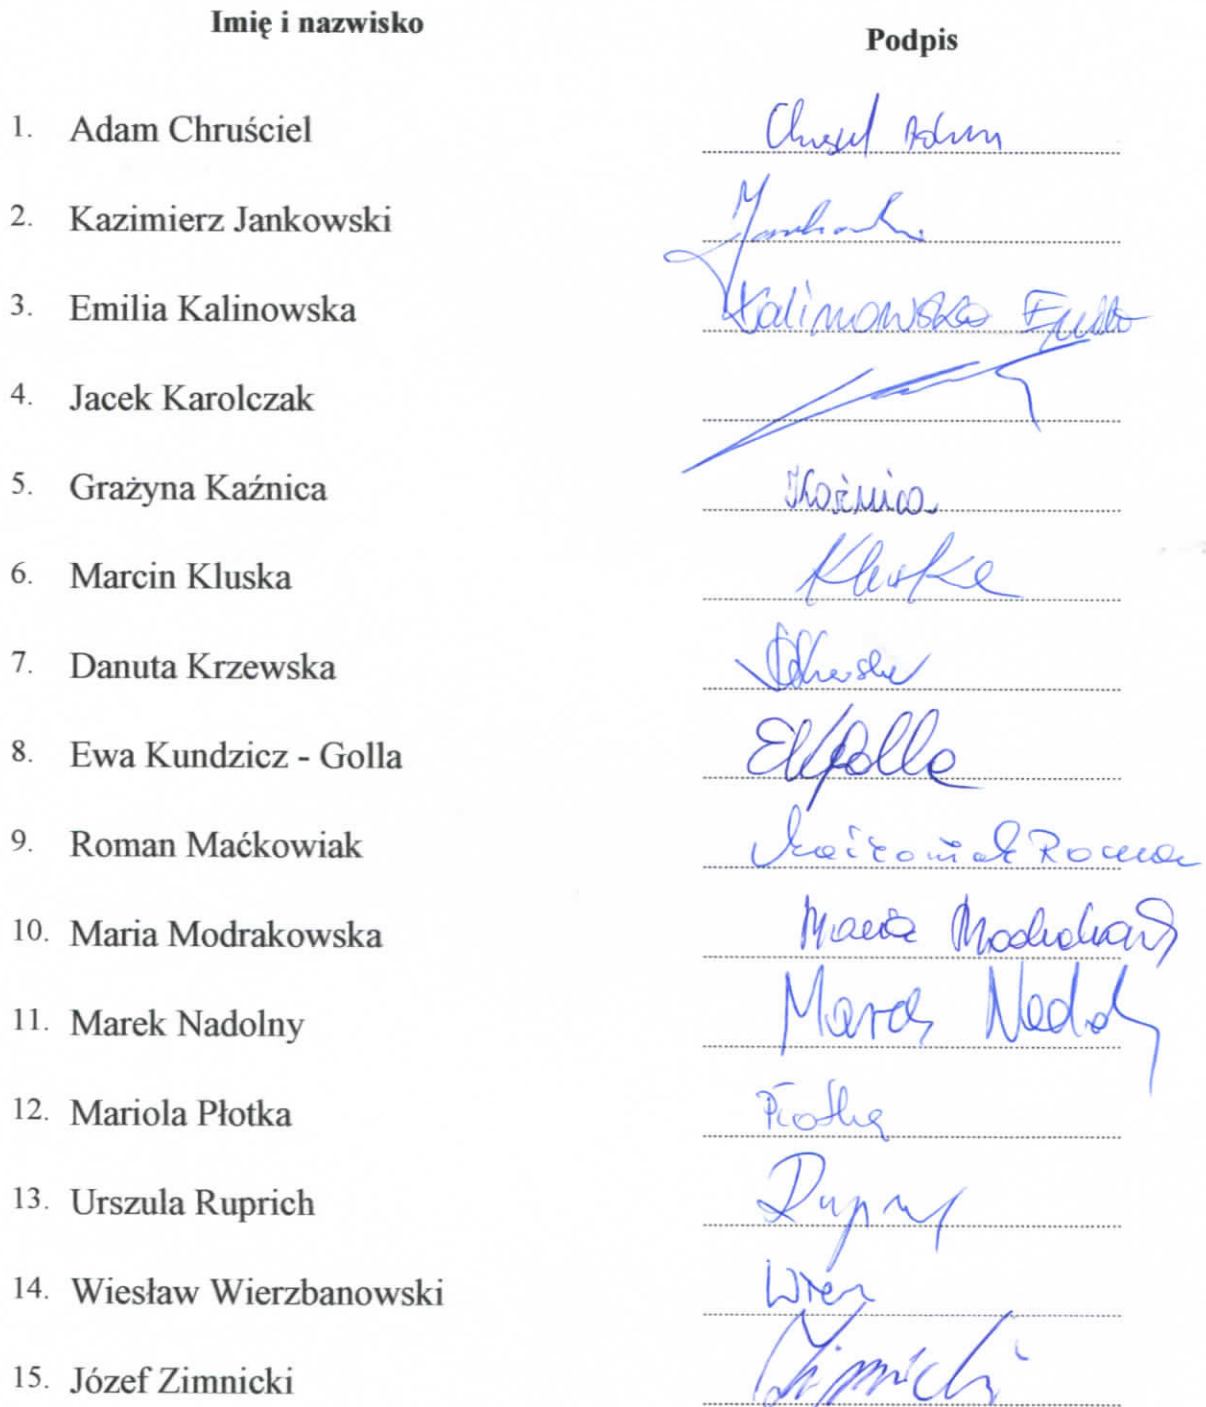 Imię i nazwisko
Podpis
1. Adam Chruściel
2. Kazimierz Jankowski
3. Emilia Kalinowska Kalinowska
4. Jacek Karolczak
5. Grażyna Kaźnica Kaźnica
6. Marcin Kluska Kluska
7. Danuta Krzewska
8. Ewa Kundzicz - Golla EKGolla
9. Roman Maćkowiak Maćkowiak Roman
10. Maria Modrakowska Maria
11. Marek Nadolny Marek
12. Mariola Płotka Płotka
13. Urszula Ruprich
14. Wiesław Wierzbanowski
15. Józef Zimnicki Zimnicki